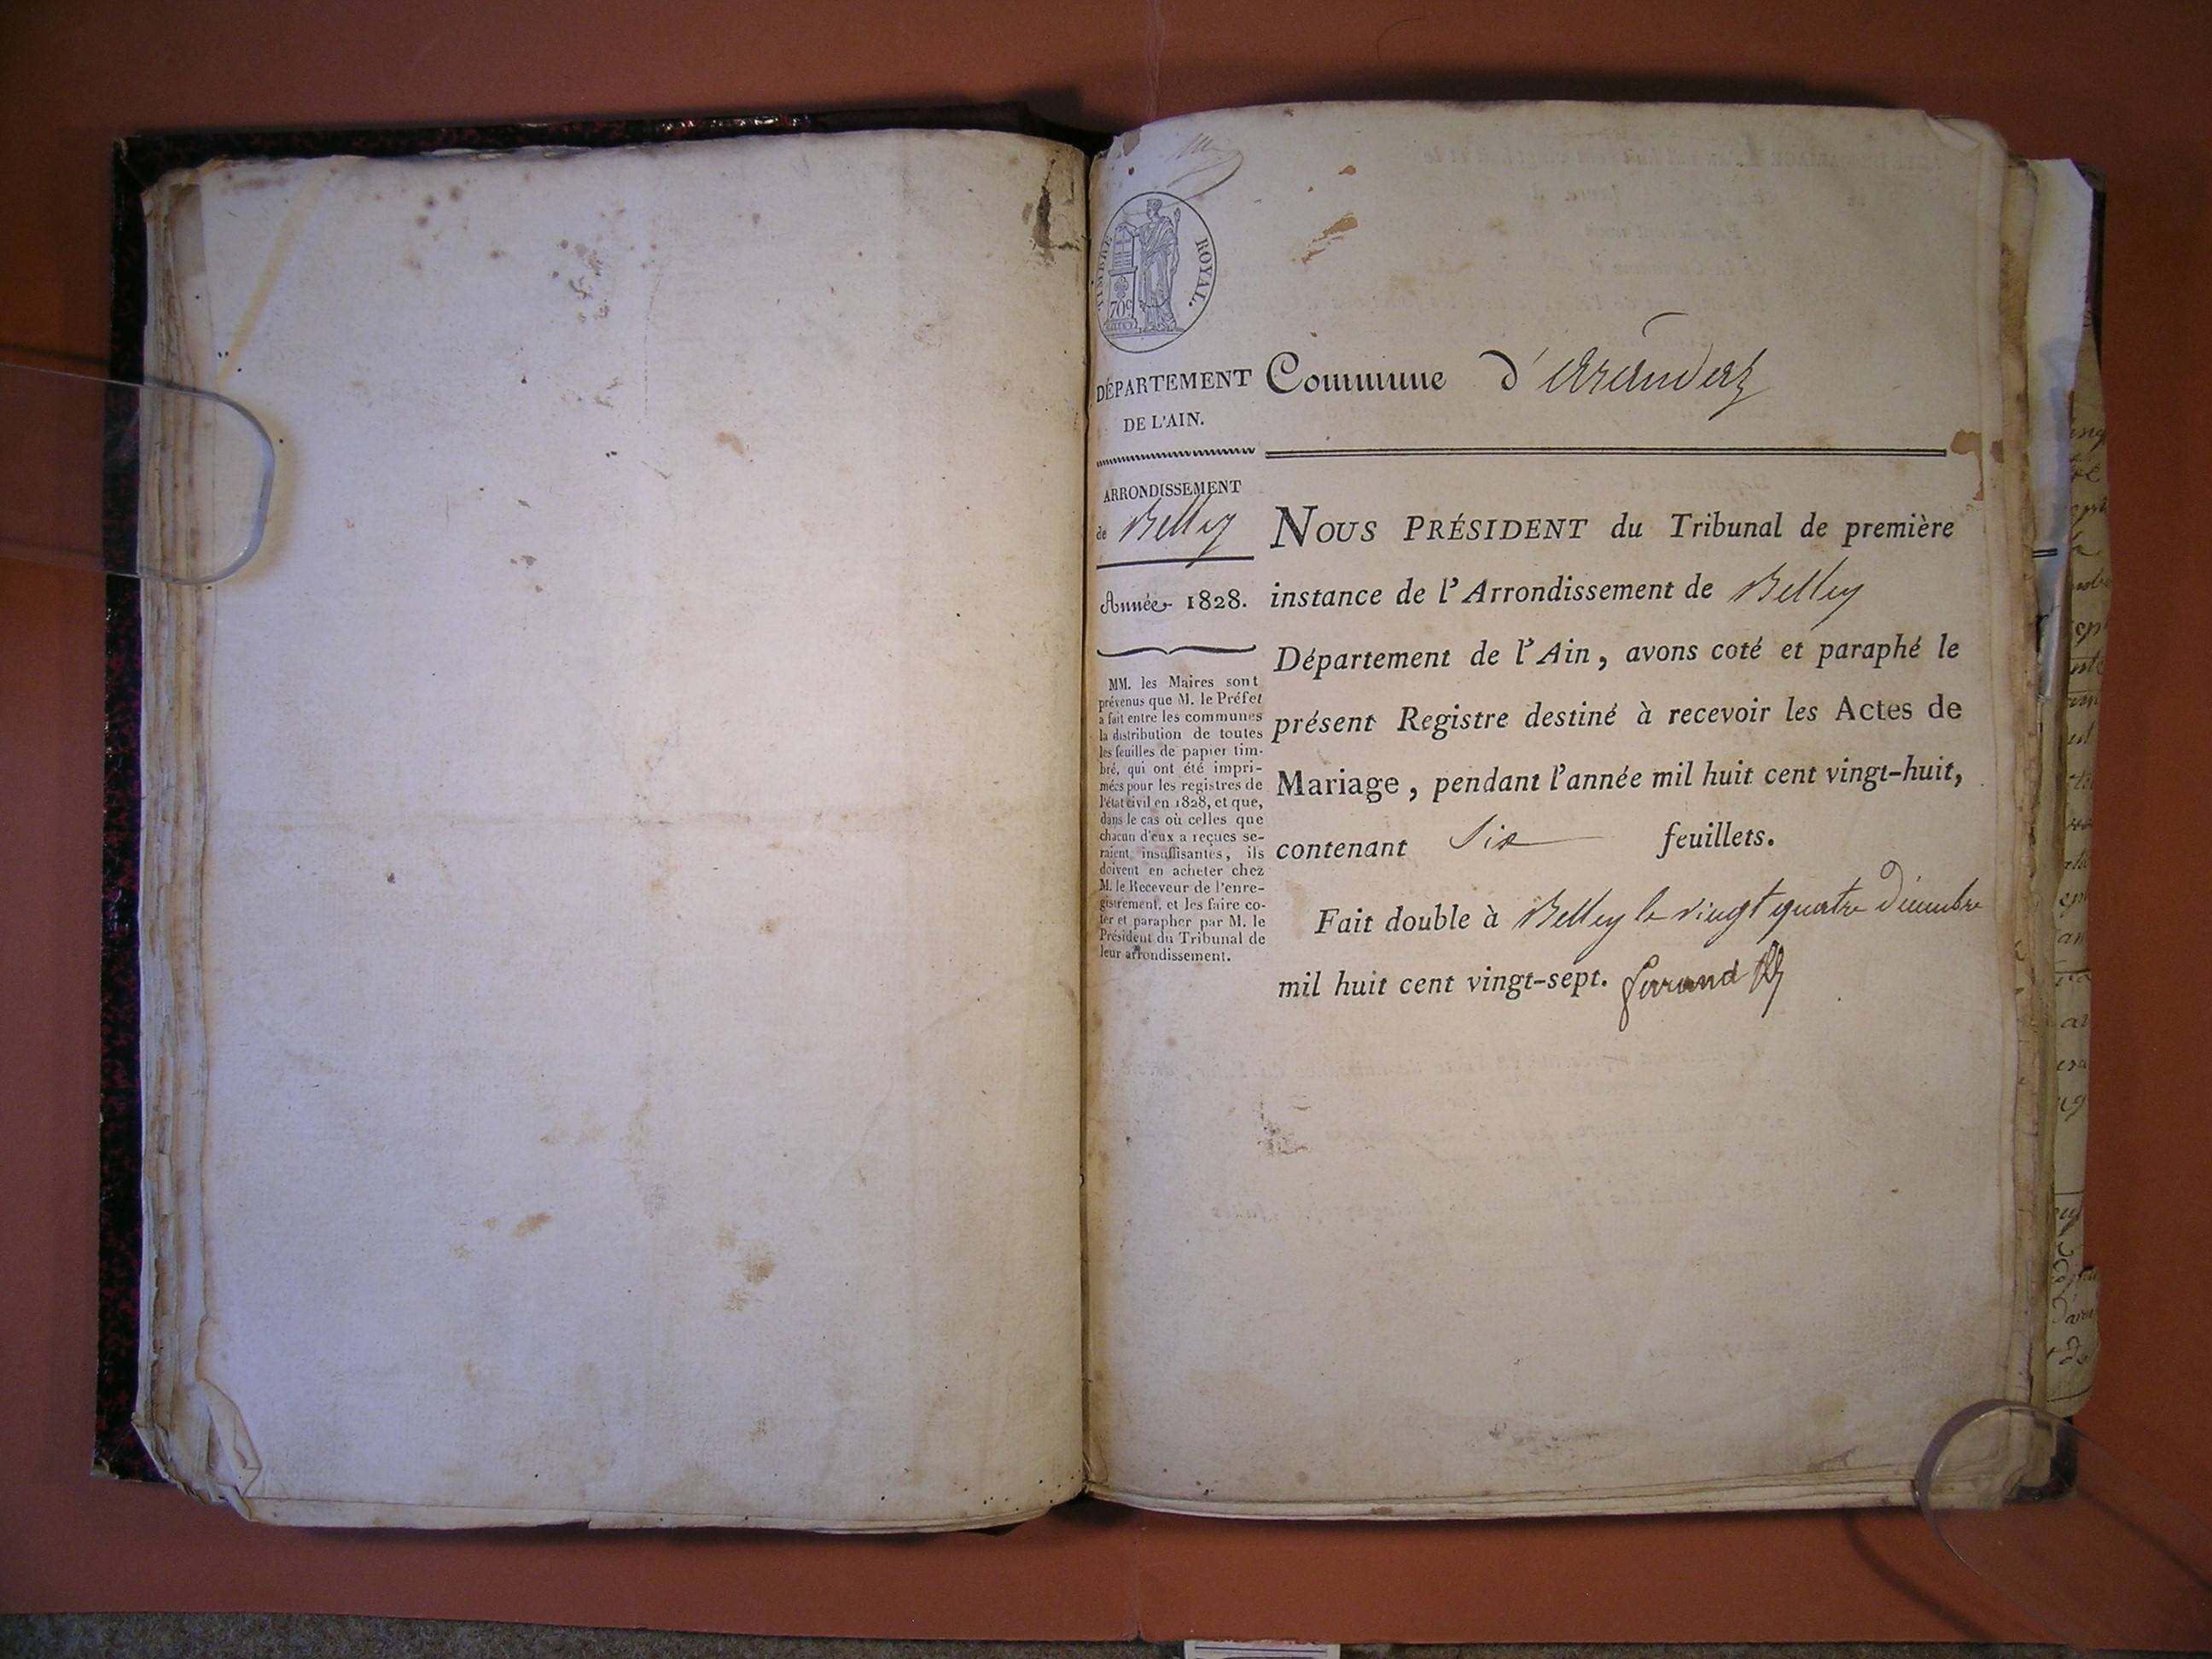 TIMBRE ROYAL.
70c
DÉPARTEMENT
DE L'AIN.
Commune d'arandas
ARRONDISSEMENT
de Belley
Année 1828.
MM. les Maires sont
prévenus que M. le Préfet
a fait entre les communes
la distribution de toutes
les feuilles de papier tim-
bré, qui ont été impri-
mées pour les registres de
l'état civil en 1828, et que,
dans le cas où celles que
chacun d'eux a reçues se-
raient insuffisantes, ils
doivent en acheter chez
M. le Receveur de l'enre-
gistrement, et les faire co-
ter et parapher par M. le
Président du Tribunal de
leur arrondissement.
NOUS PRÉSIDENT du Tribunal de première
instance de l'Arrondissement de Belley
Département de l'Ain, avons coté et paraphé le
présent Registre destiné à recevoir les Actes de
Mariage, pendant l'année mil huit cent vingt-huit,
contenant Six feuillets.
Fait double à Belley le vingt quatre Décembre
mil huit cent vingt-sept.